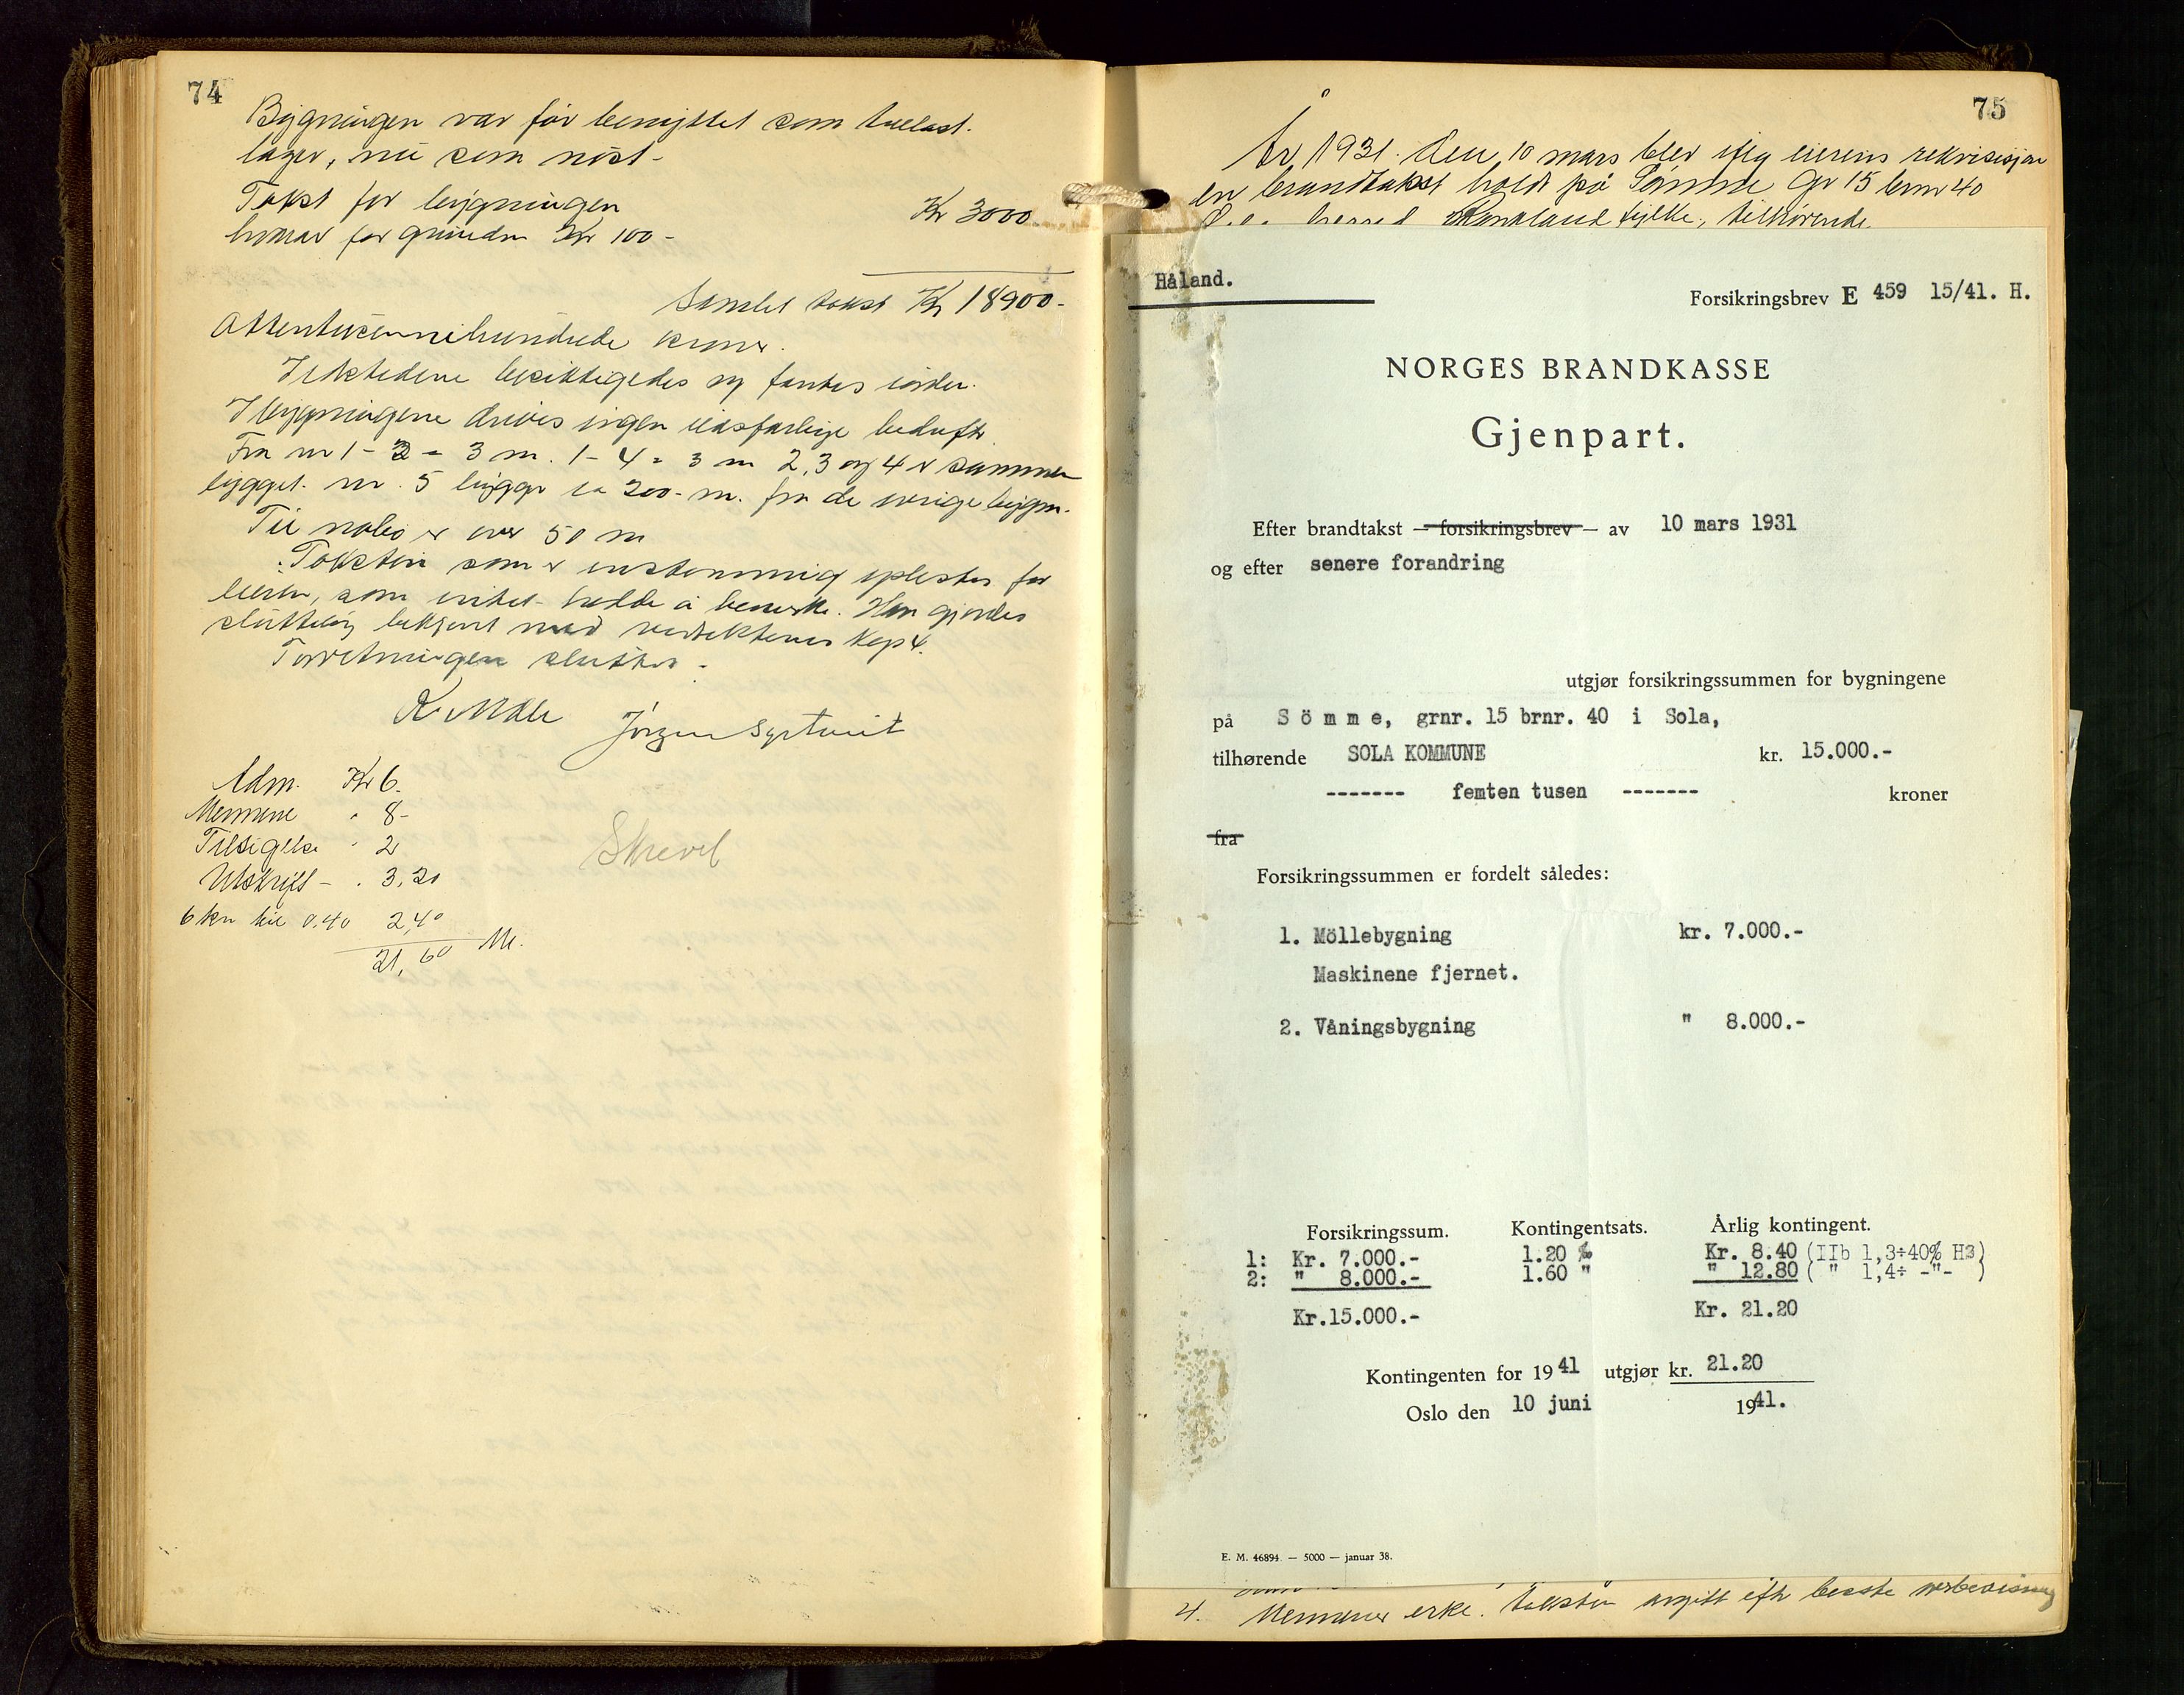 74
Bygningen var før benyttet som
lager, nu som nøst -
Takst for bygningen Kr 3000.
hvorav for grunden Kr 100 -
Samlet takst Kr 18900 -
Attentusennihundrede kroner.
Ildstedene besiktigedes og fantes iorden.
I bygningene drives ingen ildsfarlige bedrift.
Fra nr 1 - 2 = 3 m. 1 - 4 = 3 m 2, 3 og 4 er sammen
bygget. nr. 5 ligger ca 200 - m. fra de øvrige bygn.
Til nabo er over 50 m
Taksten som er enstemmig oplestes for
eieren, som intet hadde å bemerke. Han gjordes
sluttelig bekjent med Kap 4.
Forretningen sluttes -
Jørgen
Adm. Kr 6.
Mennene " 8 -
Tilsigelse " 2
Utskrift - . 3,20
6 km 0.40 2,40
21,60
Skrevet
75
År 1931. den 10 mars blev iflg eierens rekvisisjon
en brandtakst holdt på Sømme Gr 15 brnr 40
herred Rogaland fylke, tilhørende
Håland.
Forsikringsbrev E 459 15/41. H.
NORGES BRANDKASSE
Gjenpart.
Efter brandtakst — forsikringsbrev — av 10 mars 1931
og efter senere forandring
utgjør forsikringssummen for bygningene
på S ö m m e, grnr. 15 brnr. 40 i Sola,
tilhørende SOLA KOMMUNE kr. 15.000.-
------- femten tusen ------- kroner
fra
Forsikringssummen er fordelt således:
1. Möllebygning kr. 7.000.-
Maskinene fjernet.
2. Våningsbygning " 8.000.-
Forsikringssum. Kontingentsats. Årlig kontingent.
1: Kr. 7.000.- 1.20 ‰ Kr. 8.40 (IIb 1,3÷40% H3)
2: " 8.000.- 1.60 " " 12.80 ( " 1,4÷ -"- )
Kr.15.000.- Kr. 21.20
Kontingenten for 1941 utgjør kr. 21.20
Oslo den 10 juni 1941.
E. M. 46894 — 5000 — januar 38.
4. Mennene erkl. taksten avgitt efter beste